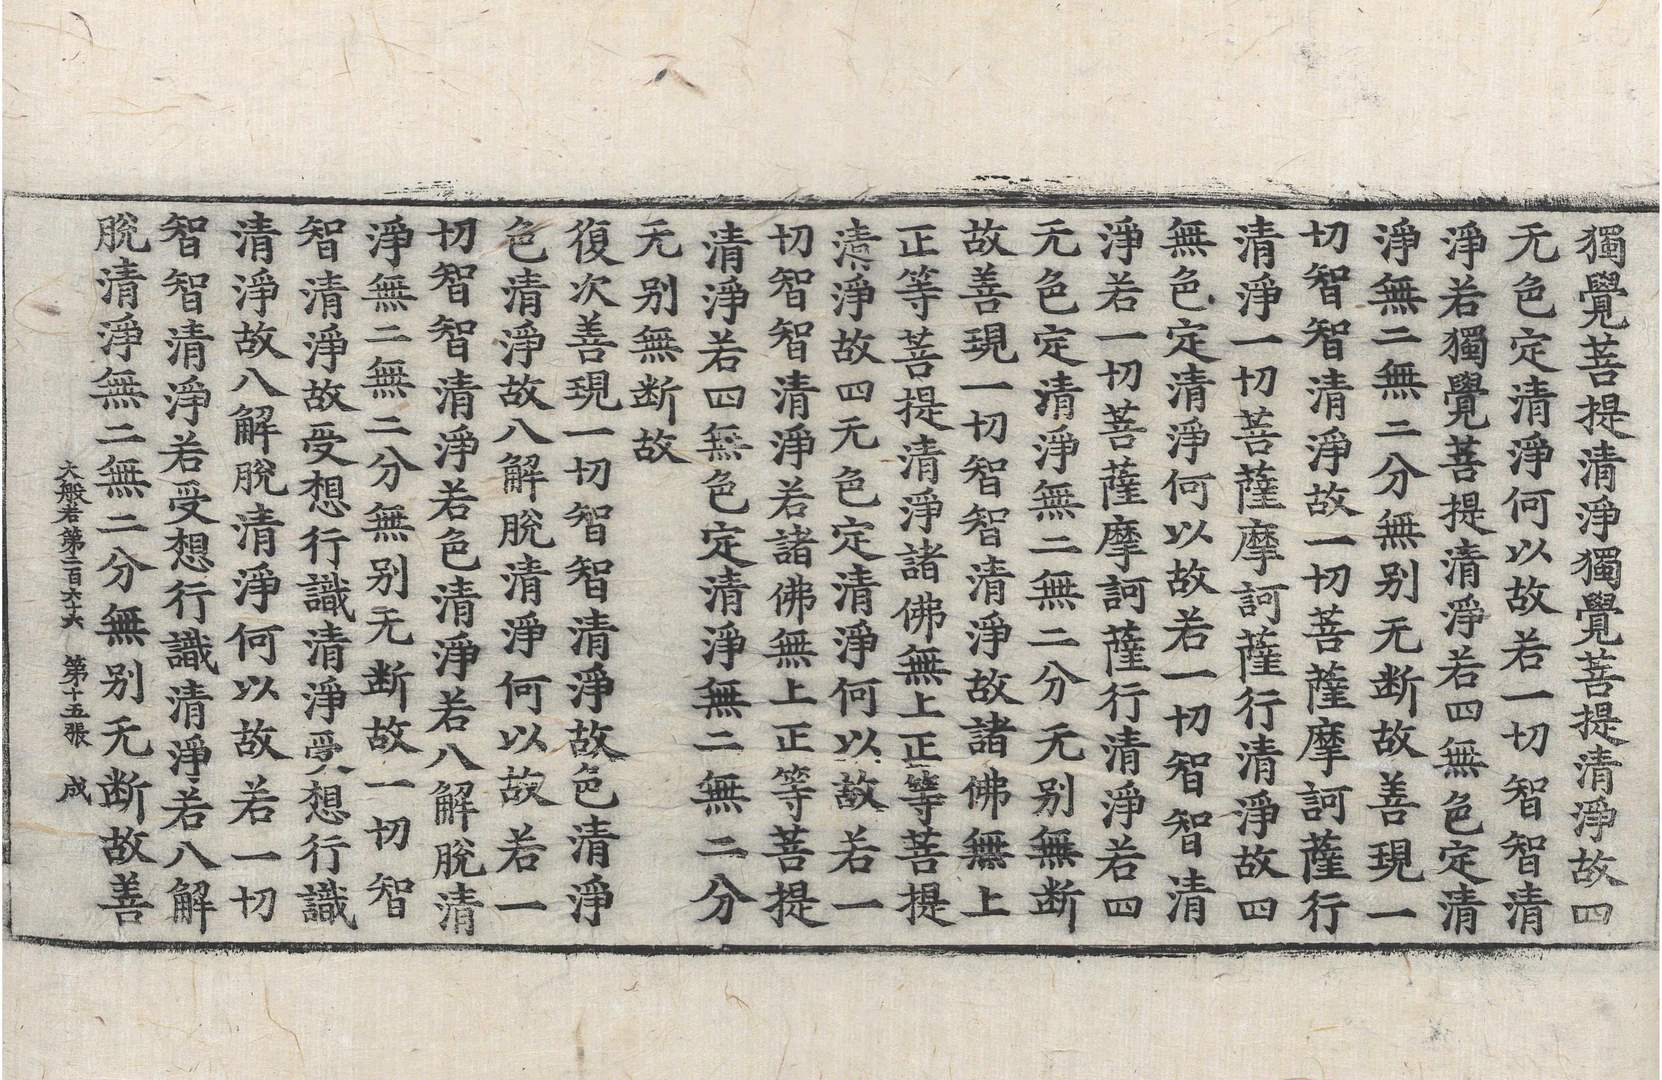 獨覺菩提清淨獨覺菩提清淨故四
无色定清淨何以故若一切智智清
淨若獨覺菩提清淨若四無色定清
淨無二無二分無别无断故善現一
切智智清淨故一切菩薩摩訶薩行
清淨一切菩薩摩訶薩行清淨故四
無色定清淨何以故若一切智智清
淨若一切菩薩摩訶薩行清淨若四
无色定清淨無二無二分无别無断
故善現一切智智清淨故諸佛無上
正等菩提清淨諸佛無上正等菩提
清淨故四无色定清淨何以故若一
切智智清淨若諸佛無上正等菩提
清淨若四無色定清淨無二無二分
无别無断故
復次善現一切智智清淨故色清淨
色清淨故八解脫清淨何以故若一
切智智清淨若色清淨若八解脫清
淨無二無二分無别无断故一切智
智清淨故受想行識清淨受想行識
清淨故八解脫清淨何以故若一切
智智清淨若受想行識清淨若八解
脫清淨無二無二分無别无断故善
大般若第二百六十六 第十五張 成